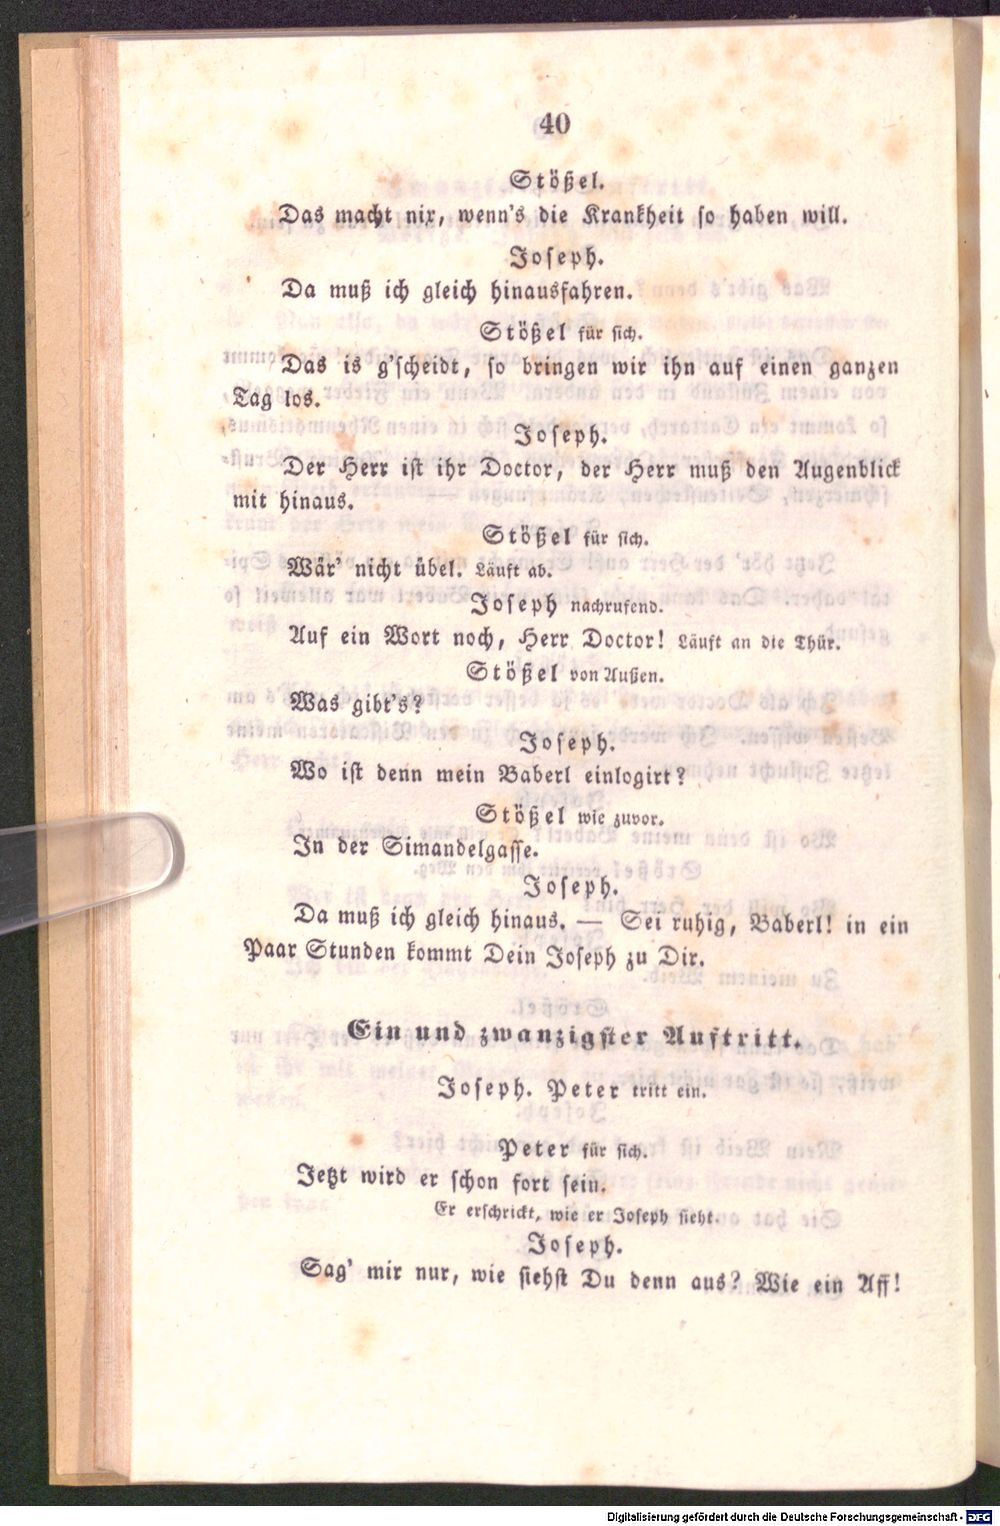 40
Stößel.
Das macht nix, wenn's die Krankheit so haben will.
Joseph.
Da muß ich gleich hinausfahren.
Stößel für sich.
Das is g'scheidt, so bringen wir ihn auf einen ganzen
Tag los.
Joseph.
Der Herr ist ihr Doctor, der Herr muß den Augenblick
mit hinaus.
Stößel für sich.
Wär' nicht übel. Läuft ab.
Joseph nachrufend.
Auf ein Wort noch, Herr Doctor! Läuft an die Thür.
Stößel von Außen.
Was gibt's?
Joseph.
Wo ist denn mein Baberl einlogirt?
Stößel wie zuvor.
In der Simandelgasse.
Joseph.
Da muß ich gleich hinaus. — Sei ruhig, Baberl! in ein
Paar Stunden kommt Dein Joseph zu Dir.
Ein und zwanzigster Auftritt.
Joseph. Peter tritt ein.
Peter für sich.
Jetzt wird er schon fort sein.
Er erschrickt, wie er Joseph sieht.
Joseph.
Sag' mir nur, wie siehst Du denn aus? Wie ein Aff!
Digitalisierung gefördert durch die Deutsche Forschungsgemeinschaft - DFG